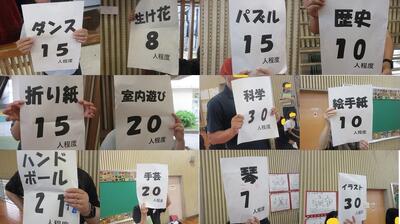 ダンス
15
人程度
生け花
8
人程度
パズル
15
人程度
歴史
10
人程度
折り紙
15
人程度
室内遊び
20
人程度
科学
30
人程度
絵手紙
10
人程度
ハンド
ボール
21
手芸
20
人程度
琴
7
人程度
イラスト
30
人程度